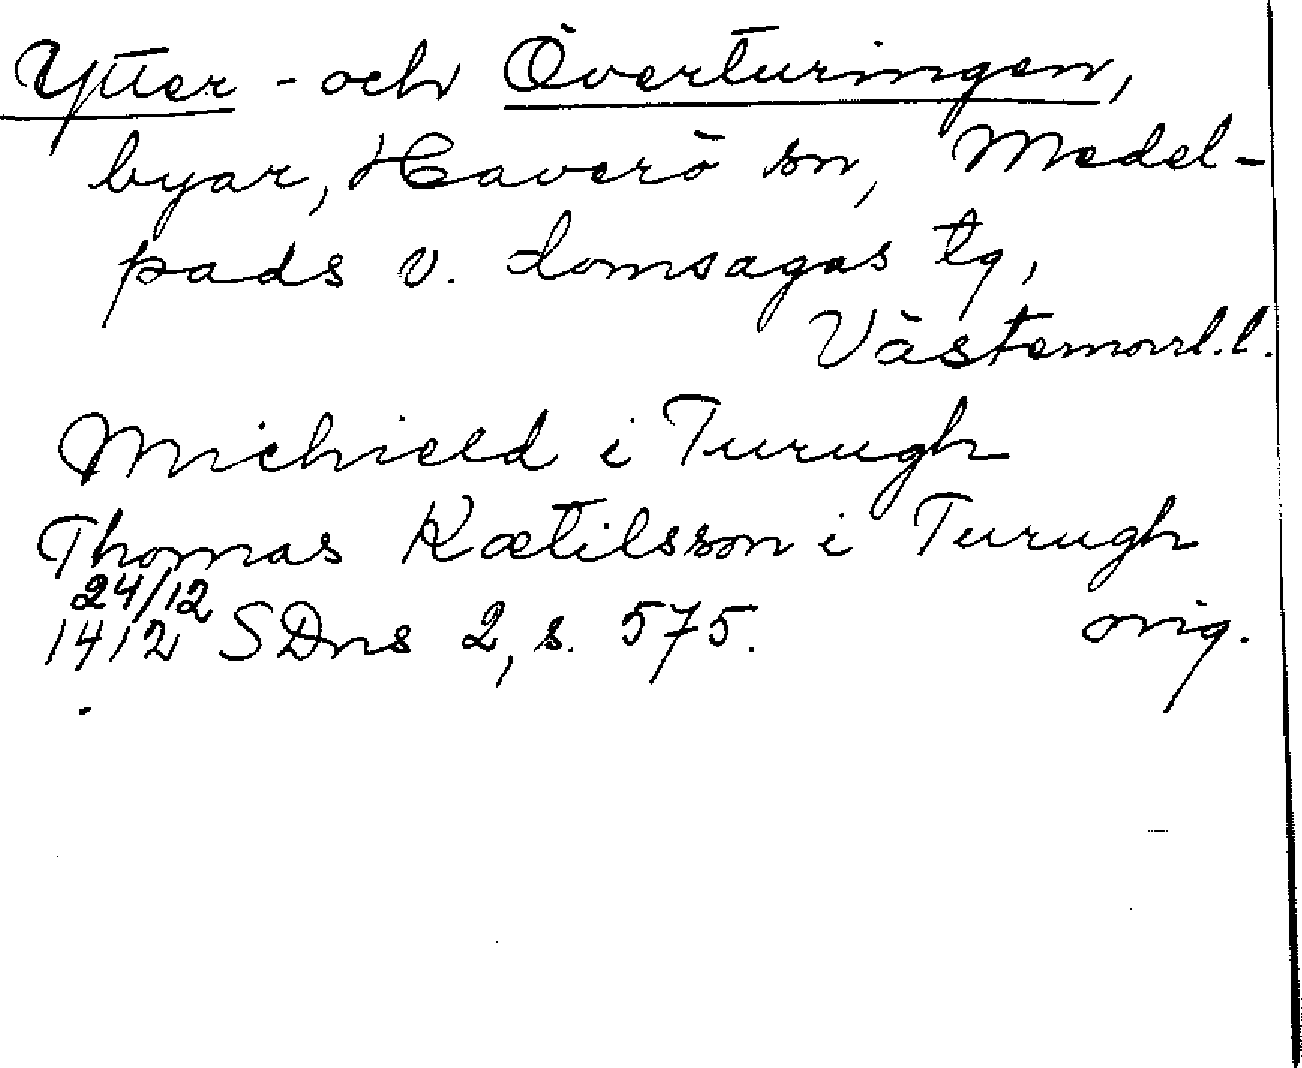 Ytter- och Överturingen,
byar, Haverö sn, Medel-
pads v. domsagas tg,
Västernorrl. l.
Michield i Turugh
Thomas Kætilsson i Turugh
24/12
1412 SDns 2, s. 575. orig.